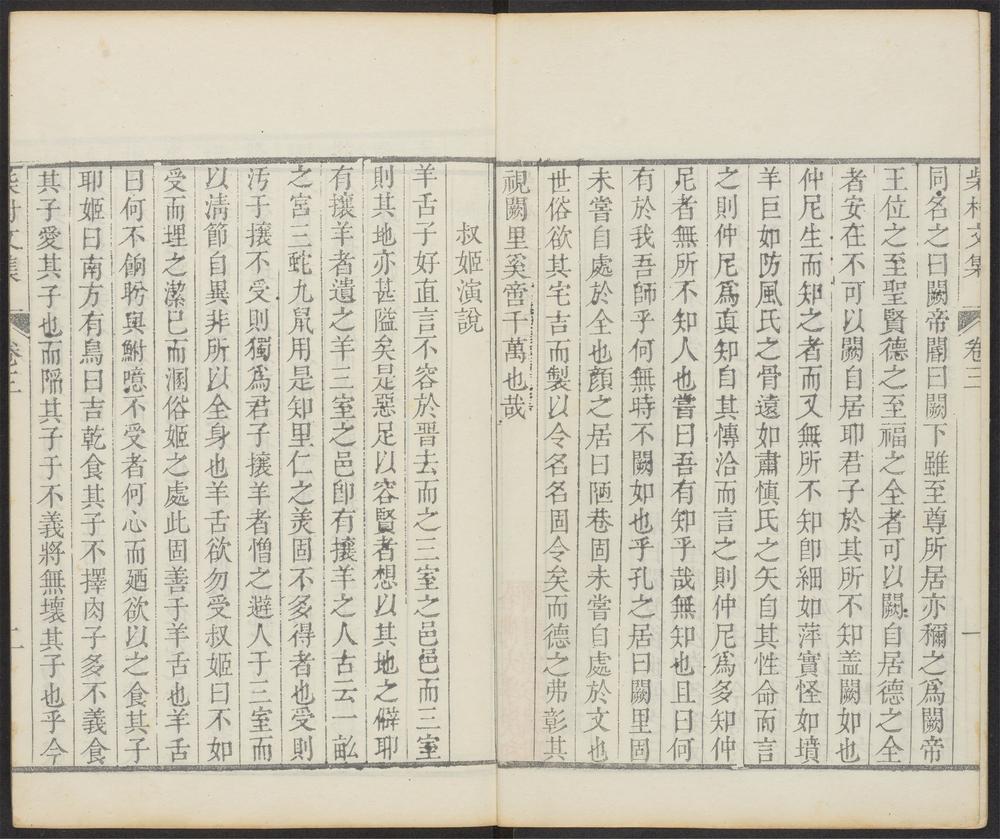 柴村文集
卷三
一
同名之曰闕帝閽曰闕下雖至尊所居亦稱之爲闕帝
王位之至聖賢德之至福之全者可以闕自居德之全
者安在不可以闕自居耶君子於其所不知蓋闕如也
仲尼生而知之者而又無所不知卽細如萍實怪如墳
羊巨如防風氏之骨遠如肅愼氏之矢自其性命而言
之則仲尼爲真知自其傳洽而言之則仲尼爲多知仲
尼者無所不知人也嘗曰吾有知乎哉無知也且曰何
有於我吾師乎何無時不闕如也乎孔之居曰闕里固
未嘗自處於全也顏之居曰陋巷固未嘗自處於文也
世俗欲其宅吉而製以令名名固令矣而德之弗彰其
視闕里奚啻千萬也哉
叔姬演說
羊舌子好直言不容於晋去而之三室之邑邑而三室
則其地亦甚隘矣是惡足以容賢者想以其地之僻耶
有攘羊者遺之羊三室之邑卽有攘羊之人古云一畝
之宮三蛇九鼠用是知里仁之美固不多得者也受則
汚于攘不受則獨爲君子攘羊者憎之避人于三室而
以淸節自異非所以全身也羊舌欲勿受叔姬曰不如
受而埋之潔已而溷俗姬之處此固善子羊舌也羊舌
曰何不餉肹與鮒噫不受者何心而廼欲以之食其子
耶姬曰南方有鳥曰吉乾食其子不擇肉子多不義食
其子愛其子也而陷其子于不義將無壞其子也乎今
柴村文集
卷三
二